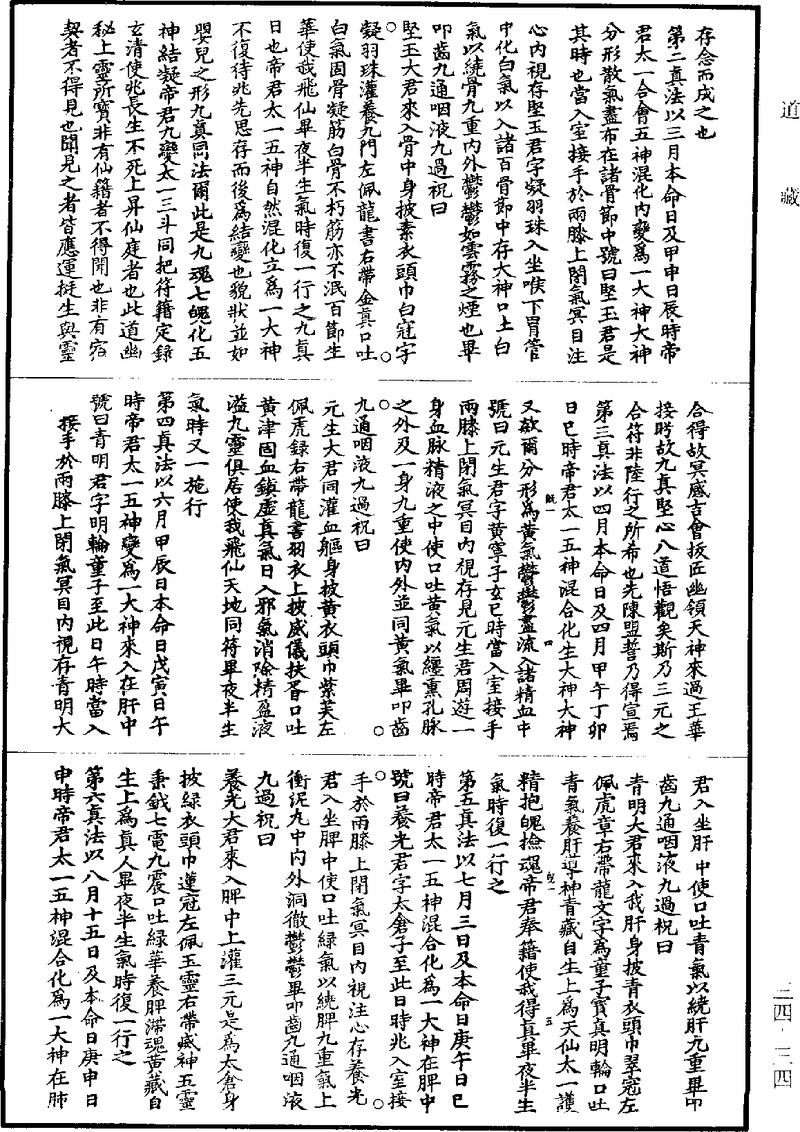 道藏
存念而成之也
第二真法以三月本命日及甲申日辰時帝
君太一合會五神混化內變爲一大神大神
分形散氣盡布在諸骨節中號曰堅玉君是
其時也當入室接手於兩膝上閉氣冥目注
心內視存堅玉君字凝羽珠入坐喉下胃管
中化白氣以入諸百骨節中存大神口上白
氣以繞骨九重內外鬱鬱如雲霧之煙也畢
叩齒九通咽液九過祝曰
堅玉大君來入骨中身披素衣頭巾白冠字
凝羽珠灌養九門左佩龍書右帶金真口吐
白氣固骨凝筋白骨不朽筋亦不泯百節生
華使我飛仙畢夜半生氣時復一行之九真
日也帝君太一五神自然混化立爲一大神
不復待兆先思存而後爲結變也貌狀並如
嬰兒之形九真同法爾此是九魂七魄化五
神結凝帝君九變太一三斗同把符籍定錄
玄清使兆長生不死上昇仙庭者也此道幽
秘上靈所寶非有仙籍者不得聞也非有宿
契者不得見也聞見之者皆應運挺生與靈
合得故冥感吉會拔匠幽領天神來過王華
接眄故九真堅心八道悟觀矣斯乃三元之
合符非陸行之所希也先陳盟誓乃得宣焉
第三真法以四月本命日及四月甲午丁卯
日巳時帝君太一五神混合化生大神大神
又欻爾分形爲黃氣鬱鬱盡流入諸精血中
號曰元生君字黃寧子玄巳時當入室接手
兩膝上閉氣冥目內視存見元生君周遊一
身血脉精液之中使口吐黃氣以纏熏孔脉
之外及一身九重使內外並同黃氣畢叩齒
九通咽液九過祝曰
元生大君同灌血軀身披黃衣頭巾紫芙左
佩虎錄右帶龍書羽衣上披威儀扶胥口吐
黃津固血鎮虛真氣日入邪氣消除精盈液
溢九靈俱居使我飛仙天地同符畢夜半生
氣時又一施行
第四真法以六月甲辰日本命日戊寅日午
時帝君太一五神變爲一大神來入在肝中
號曰青明君字明輪童子至此日午時當入
接手於兩膝上閉氣冥目內視存青明大
君入坐肝中使口吐青氣以繞肝九重畢叩
齒九通咽液九過祝曰
青明大君來入我肝身披青衣頭巾翠冠左
佩虎章右帶龍文字爲童子寶真明輪口吐
青氣養肝導神青藏自生上爲天仙太一護
精抱魄撿魂帝君奉籍使我得真畢夜半生
氣時復一行之
第五真法以七月三日及本命日庚午日巳
時帝君太一五神混合化爲一大神在脾中
號曰養光君字太倉子至此日時兆入室接
手於兩膝上閉氣冥目內視注心存養光
君入坐脾中使口吐綠氣以繞脾九重氣上
衝泥丸中內外洞徹鬱鬱畢叩齒九通咽液
九過祝曰
養光大君來入脾中上灌三元是爲太倉身
披綠衣頭巾蓮冠左佩玉靈右帶威神五靈
秉鉞七電九震口吐綠華養脾滯魂黃藏自
生上爲真人畢夜半生氣時復一行之
第六真法以八月十五日及本命日庚申日
申時帝君太一五神混合化爲一大神在肺
三四·三四